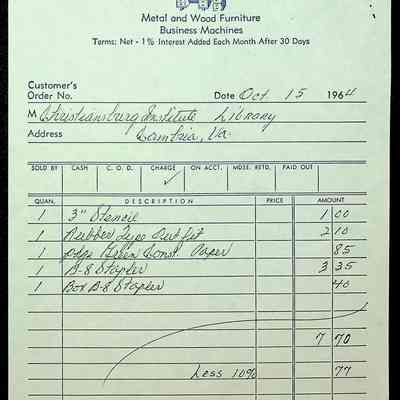 Metal and Wood Furniture
Business Machines
Terms: Net - 1% Interest Added Each Month After 30 Days
Customer's
Order No. Date Oct 15 1964
M Christiansburg Institute Library
Address Cambria, Va.
SOLD BY CASH C. O. D. CHARGE ON ACCT. MDSE. RETD. PAID OUT
✓
QUAN. DESCRIPTION PRICE AMOUNT
1 3" Stencil 1 00
1 Rubber Type Outfit 2 10
1 pkge Green Const. Paper 85
1 B-8 Stapler 3 35
1 Box B-8 Stapler 40
7 70
Less 10% 77